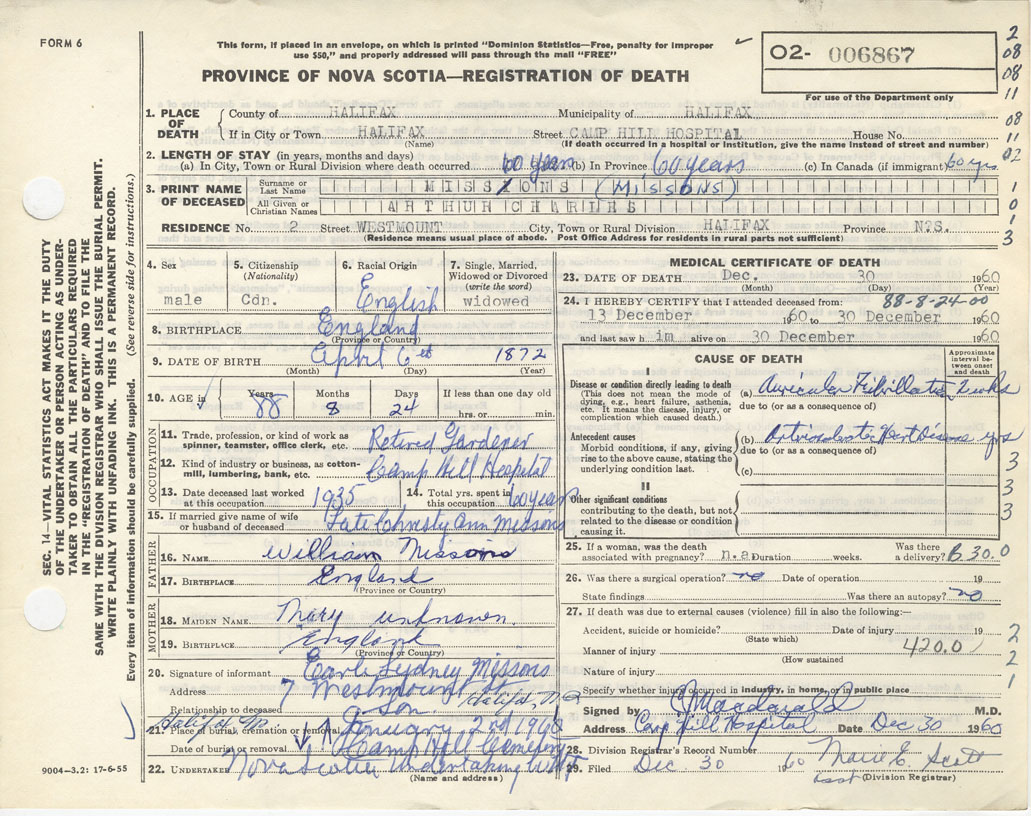 FORM 6
This form, if placed in an envelope, on which is printed "Dominion Statistics—Free, penalty for improper
use $50," and properly addressed will pass through the mail "FREE"
PROVINCE OF NOVA SCOTIA—REGISTRATION OF DEATH
O2- 006867
For use of the Department only
2
08
08
11
08
11
02
1
0
1
0
3
1. PLACE OF DEATH
County of HALIFAX Municipality of HALIFAX
If in City or Town HALIFAX Street CAMP HILL HOSPITAL House No.
(Name) (If death occurred in a hospital or institution, give the name instead of street and number)
2. LENGTH OF STAY (in years, months and days)
(a) In City, Town or Rural Division where death occurred 60 years (b) In Province 60 years (c) In Canada (if immigrant) 60 yrs
3. PRINT NAME OF DECEASED
Surname or Last Name MISSIONS (MISSONS)
All Given or Christian Names ARTHUR CHARLES
RESIDENCE No. 2 Street WESTMOUNT City, Town or Rural Division HALIFAX Province N.S.
(Residence means usual place of abode. Post Office Address for residents in rural parts not sufficient)
4. Sex male
5. Citizenship (Nationality) Cdn.
6. Racial Origin English
7. Single, Married, Widowed or Divorced (write the word) widowed
8. BIRTHPLACE England
(Province or Country)
9. DATE OF BIRTH April 6 1872
(Month) (Day) (Year)
10. AGE in Years 88 Months 8 Days 24 If less than one day old
hrs. or min.
OCCUPATION
11. Trade, profession, or kind of work as spinner, teamster, office clerk, etc. Retired Gardener
12. Kind of industry or business, as cotton-mill, lumbering, bank, etc. Camp Hill Hospital
13. Date deceased last worked at this occupation 1935 14. Total yrs. spent in this occupation 60 years
15. If married give name of wife or husband of deceased Late Christy Ann Missons
FATHER
16. NAME William Missons
17. BIRTHPLACE England
(Province or Country)
MOTHER
18. MAIDEN NAME Mary unknown
19. BIRTHPLACE England
(Province or Country)
20. Signature of informant Earle Sydney Missons
Address 7 Westmount St Halifax, N.S.
Relationship to deceased Son
21. Place of burial, cremation or removal
January 2nd 1960
Date of burial or removal Camp Hill Cemetery
22. UNDERTAKER Nova Scotia Undertaking
(Name and address)
MEDICAL CERTIFICATE OF DEATH
23. DATE OF DEATH Dec. 30 1960
(Month) (Day) (Year)
24. I HEREBY CERTIFY that I attended deceased from: 88-8-24-00
13 December 1960 to 30 December 1960
and last saw h im alive on 30 December 1960
CAUSE OF DEATH
Approximate interval between onset and death
I
Disease or condition directly leading to death
(This does not mean the mode of dying, e.g., heart failure, asthenia, etc. It means the disease, injury, or complication which caused death.)
(a) Auricular Fibrillation 2 wks
due to (or as a consequence of)
Antecedent causes
Morbid conditions, if any, giving rise to the above cause, stating the underlying condition last.
(b) Heart Disease yrs
due to (or as a consequence of)
(c)
II
Other significant conditions
contributing to the death, but not related to the disease or condition causing it.
3
3
3
3
25. If a woman, was the death associated with pregnancy? n.a. Duration weeks. Was there a delivery? B.30.0
26. Was there a surgical operation? no Date of operation 19
State findings Was there an autopsy? no
27. If death was due to external causes (violence) fill in also the following:—
Accident, suicide or homicide? Date of injury 19
(State which)
Manner of injury 420.0
(How sustained
Nature of injury
2
2
1
Specify whether injury occurred in industry, in home, or in public place
Signed by Macdonald M.D.
Address Camp Hill Hospital Date Dec 30 1960
28. Division Registrar's Record Number
29. Filed Dec 30 1960 Marie E. Scott
asst (Division Registrar)
SEC. 14—VITAL STATISTICS ACT MAKES IT THE DUTY
OF THE UNDERTAKER OR PERSON ACTING AS UNDER-
TAKER TO OBTAIN ALL THE PARTICULARS REQUIRED
IN THE "REGISTRATION OF DEATH" AND TO FILE THE
SAME WITH THE DIVISION REGISTRAR WHO SHALL ISSUE THE BURIAL PERMIT.
WRITE PLAINLY WITH UNFADING INK. THIS IS A PERMANENT RECORD.
Every item of information should be carefully supplied. (See reverse side for instructions.)
9004—3.2: 17-6-55